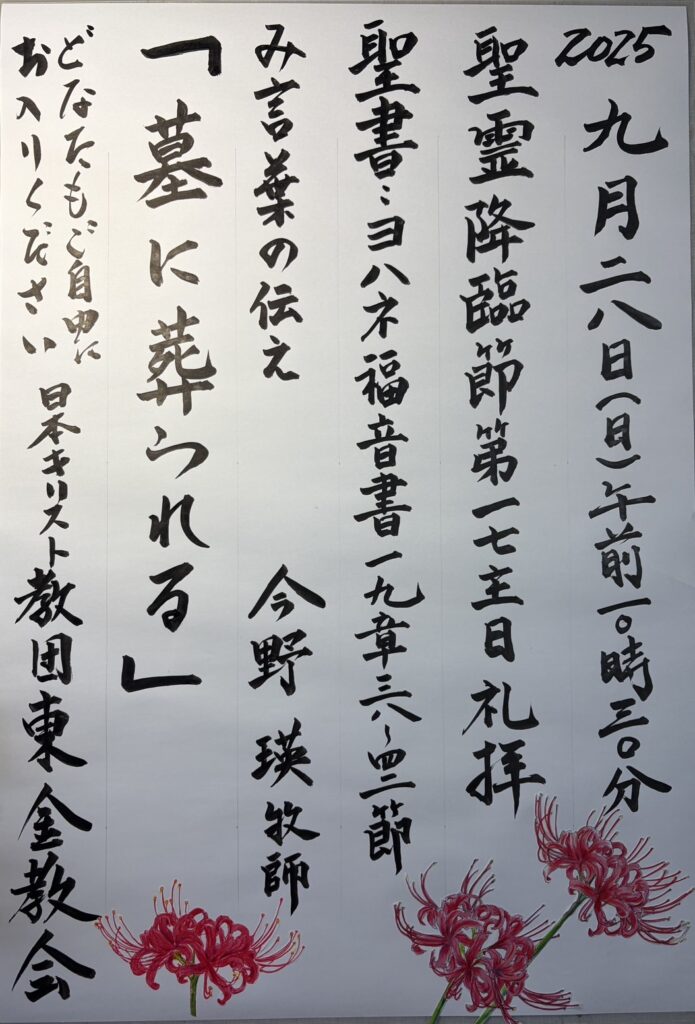 2025 九月二八日(日)午前一〇時三〇分
聖霊降臨節第一七主日礼拝
聖書:ヨハネ福音書一九章三八〜四二節
み言葉の伝え 今野 瑛牧師
「墓に葬られる」
どなたもご自由に
お入りください
日本キリスト教団東金教会